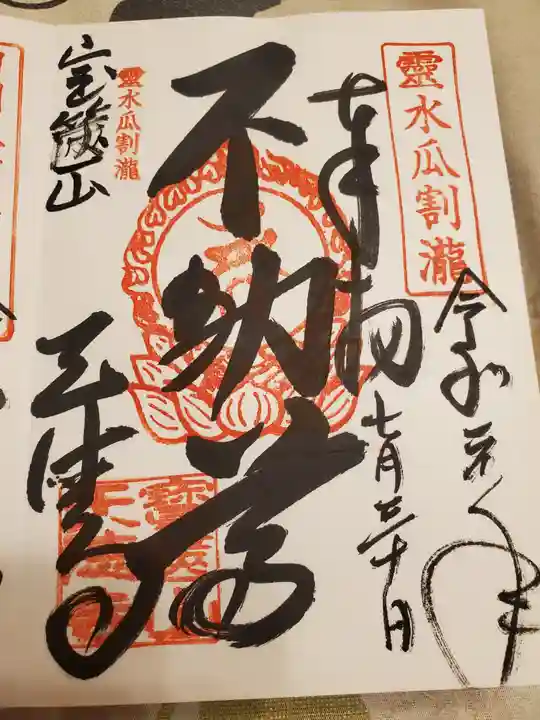 靈水瓜割瀧
令和元年
奉拝
七月二十日
不納尊
靈水瓜割瀧
宝篋山
天徳寺